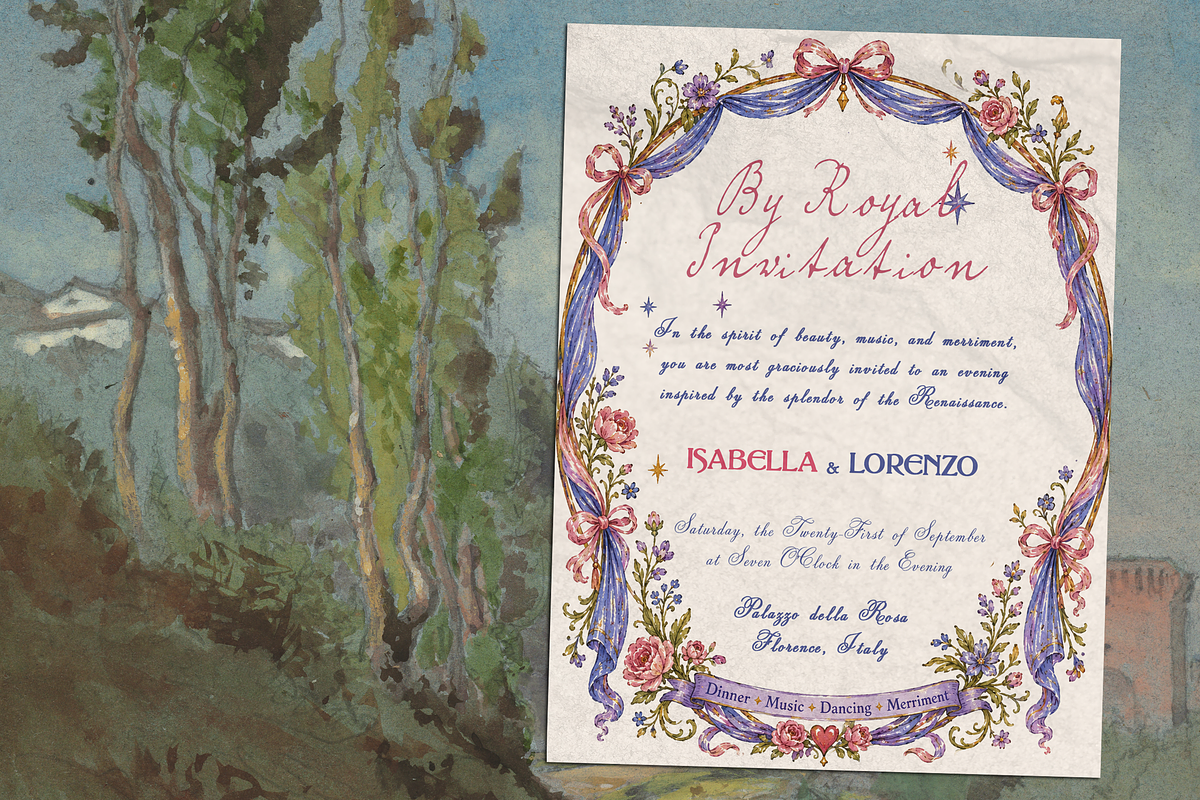 By Royal
Invitation
In the spirit of beauty, music, and merriment,
you are most graciously invited to an evening
inspired by the splendor of the Renaissance.
ISABELLA & LORENZO
Saturday, the Twenty-First of September
at Seven O'Clock in the Evening
Palazzo della Rosa
Florence, Italy
Dinner ✦ Music ✦ Dancing ✦ Merriment